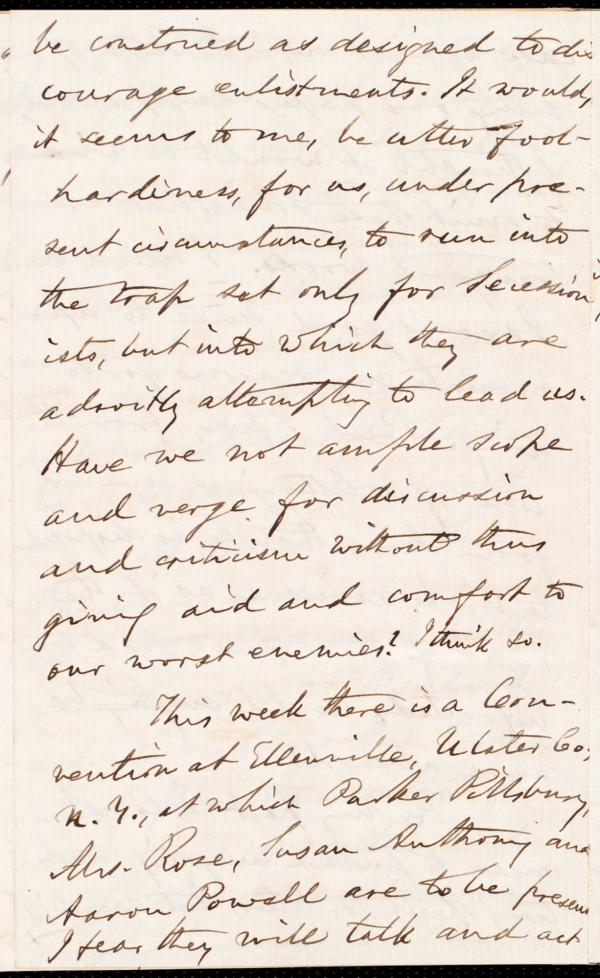 be construed as designed to dis
courage enlistments. It would,
it seems to me, be utter fool-
hardiness, for us, under pre-
sent circumstances, to run into
the trap set only for Secession
ists, but into which they are
adroitly attempting to lead us.
Have we not ample scope
and verge for discussion
and criticism without thus
giving aid and comfort to
our worst enemies? I think so.
This week there is a Con-
vention at Ellenville, Ulster Co.,
N. Y., at which Parker Pillsbury,
Mrs. Rose, Susan Anthony and
Aaron Powell are to be present
I fear they will talk and act